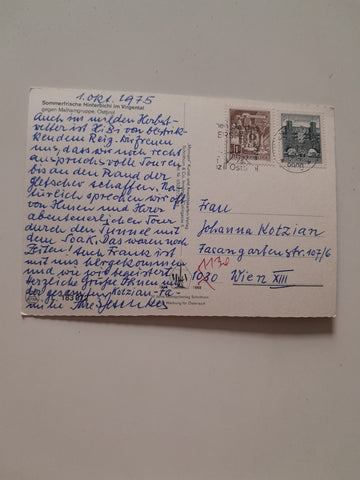 1. Okt. 1975
Sommerfrische Hinterbichl im Virgental
gegen Malhamgruppe, Osttirol
Auch im milden Herbst-
wetter ist Hi Bi von bestrik-
kendem Reiz. Wir freuen
uns, dass wir noch recht
anspruchsvolle Touren
bis an den Rand der
Gletscher schaffen. Na-
türlich sprechen wir oft
von Ihnen und Ihrer
abenteuerlichen Tour
durch den Tunnel mit
dem Das waren noch
Zeiten! Auch Frank ist
mit uns hergekommen
und wie wir begeistert.
Herzliche Grüße Ihnen und
der gesamten Kotzian-Fa-
milie Ihre
Frau
Johanna Kotzian
Fasangartenstr. 107/6
1130
1030 Wien XIII